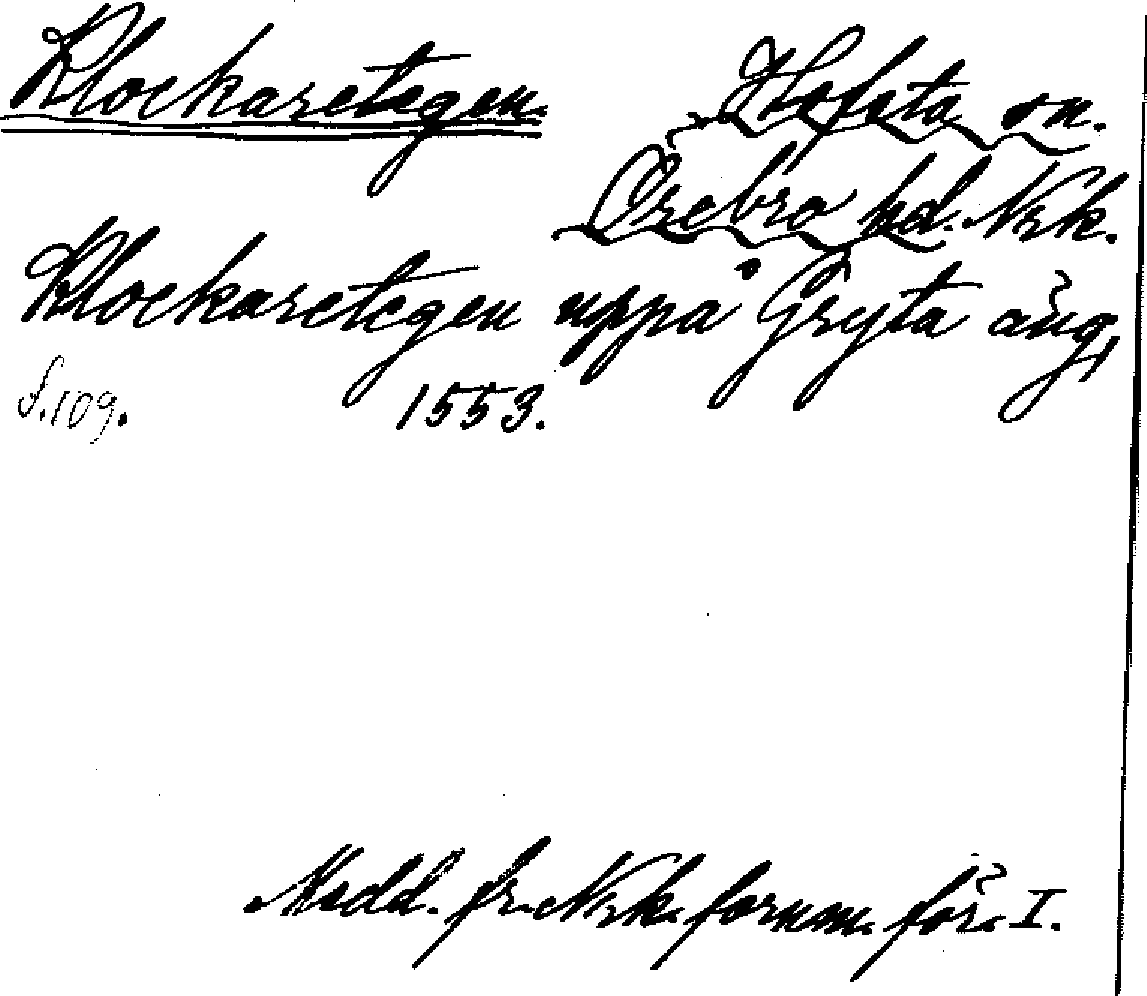 Klockaretegen Hofsta sn.
Örebro hd. Nrk.
Klockaretegen uppå Gryta äng,
s. 109. 1553.
Medd. fr. Nrk. fornm. för. I.